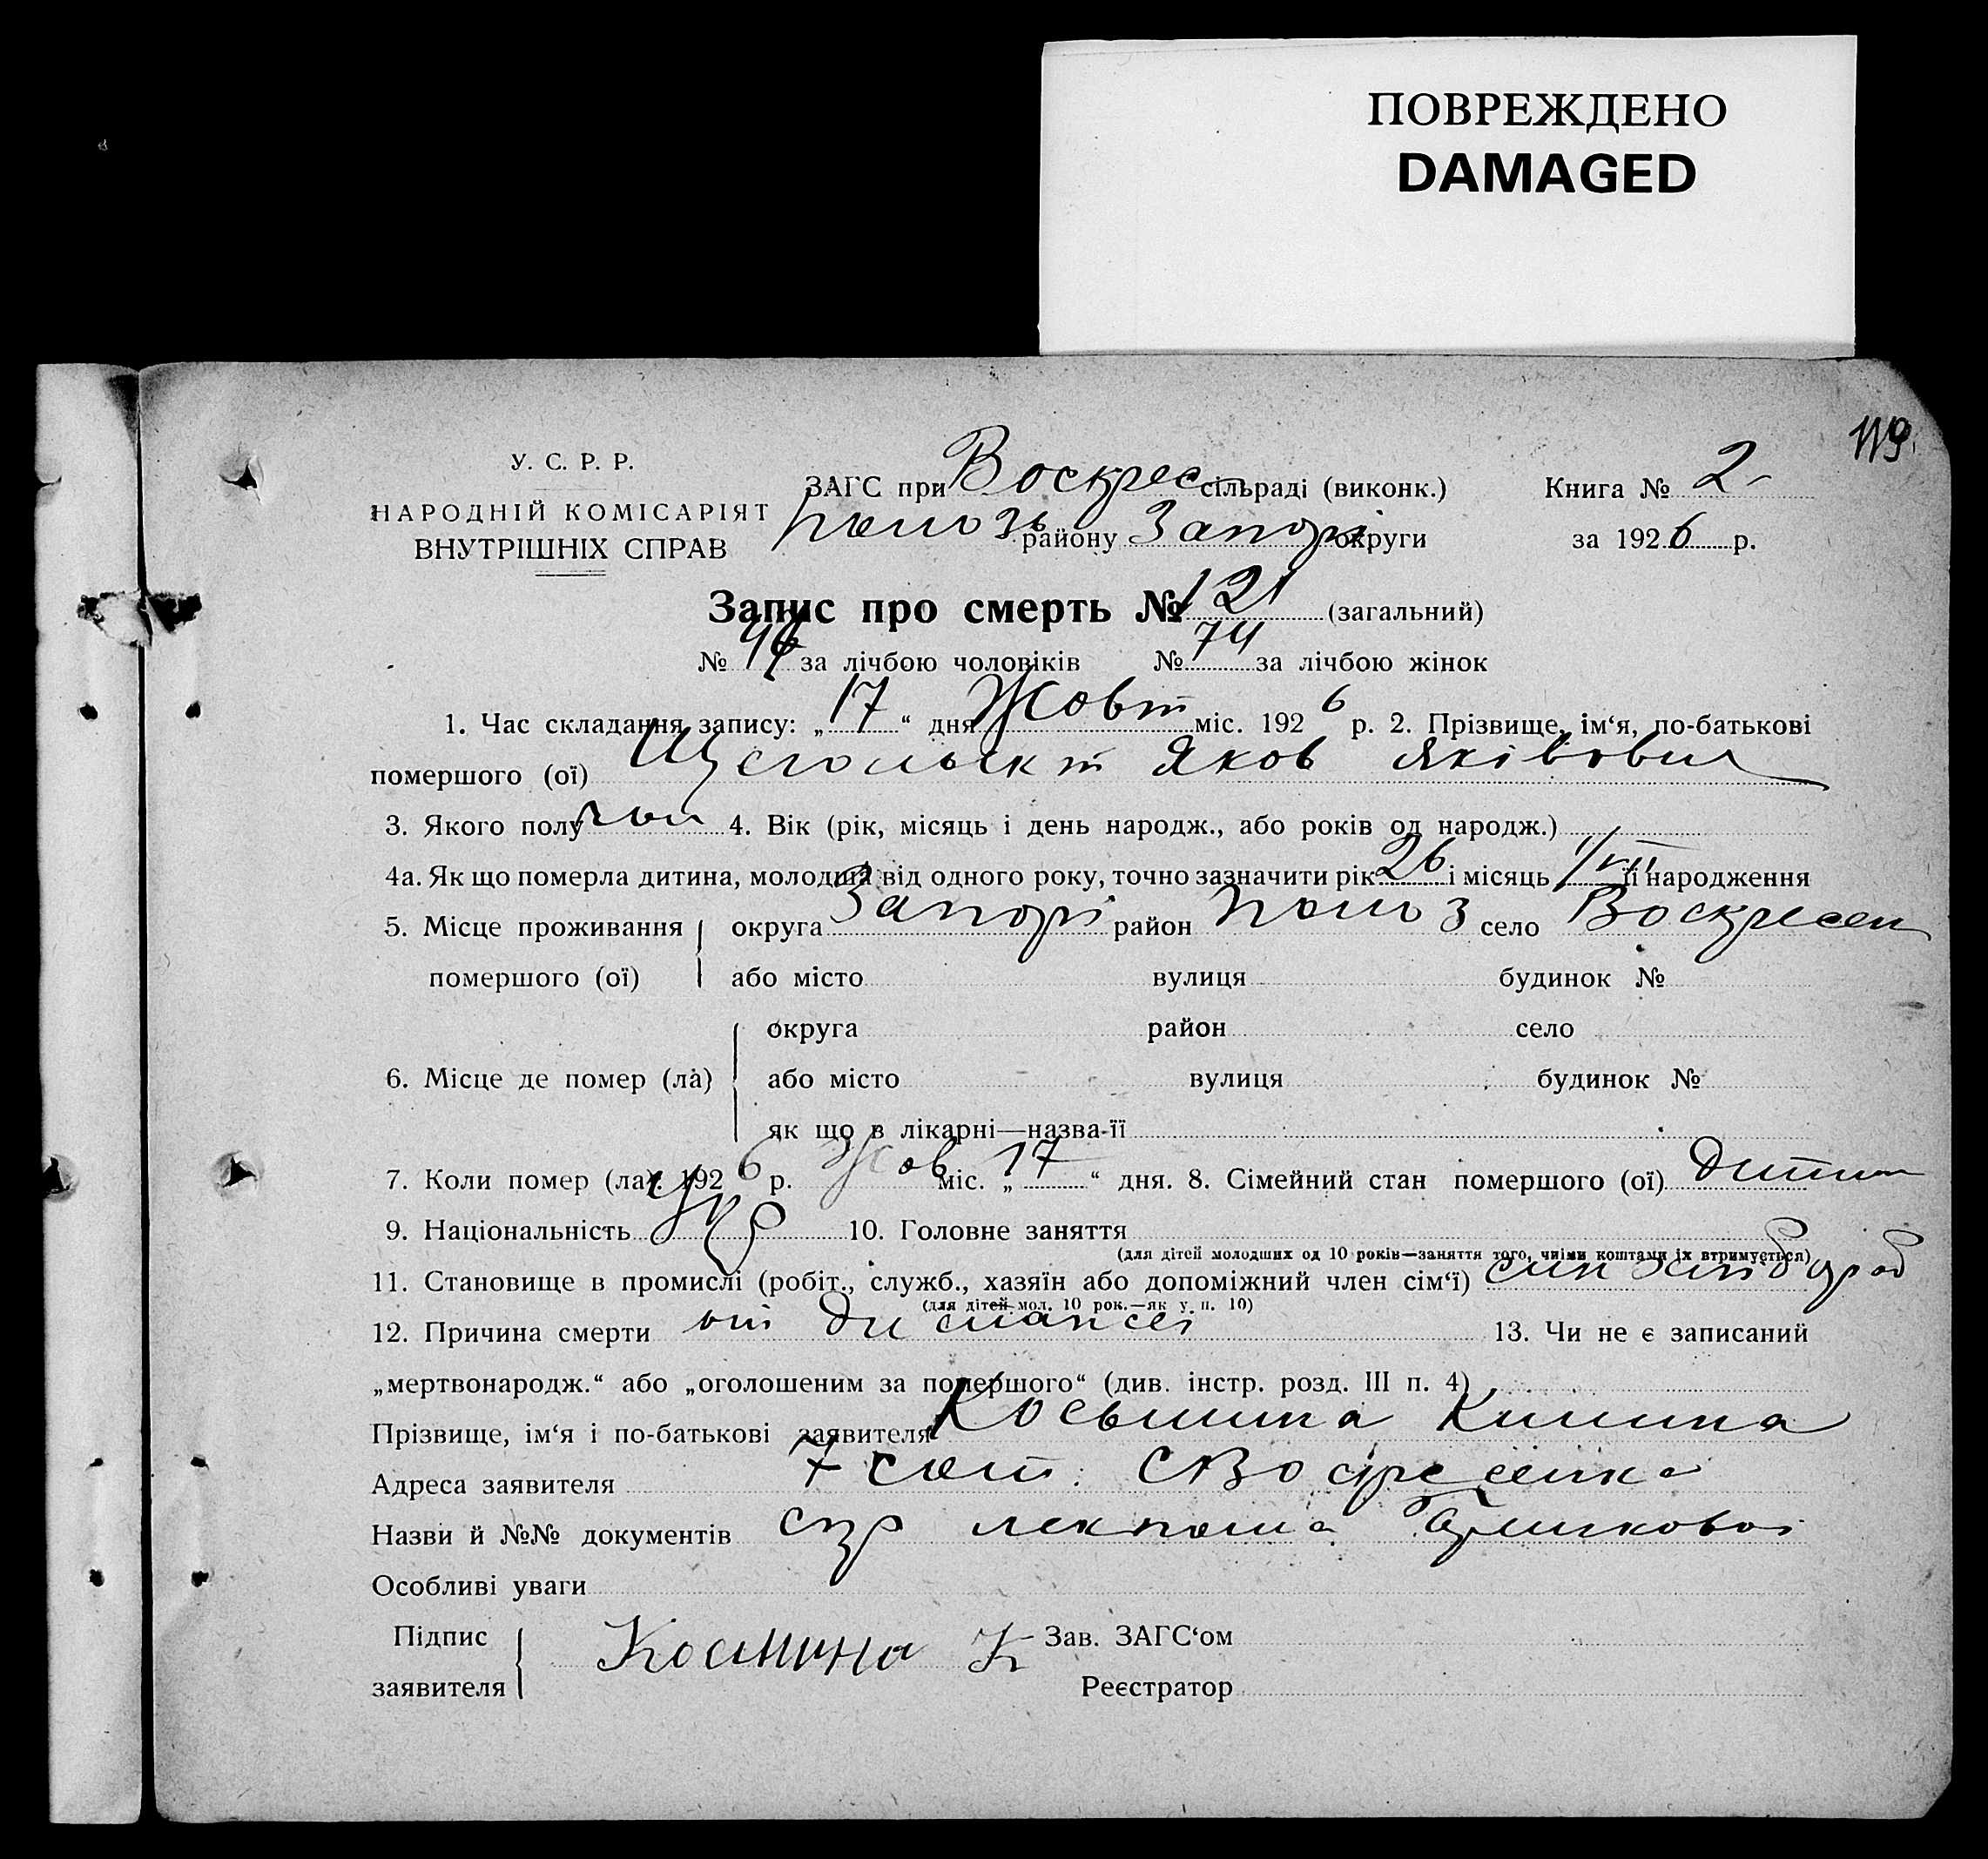 ПОВРЕЖДЕНО
DAMAGED
119.
У. С. Р. Р.
НАРОДНІЙ КОМІСАРІЯТ
ВНУТРІШНІХ СПРАВ
ЗАГС при Воскрес сільраді (виконк.) Книга № 2
району Запорі округи за 1926 р.
Запис про смерть № 121 (загальний)
№ за лічбою чоловіків № 74 за лічбою жінок
1. Час складання запису: „17“ дня Жовт міс. 1926 р. 2. Прізвище, ім‘я, по-батькові
помершого (ої) Яков Яківович
3. Якого полу чол 4. Вік (рік, місяць і день народж., або років од народж.)
4а. Як що померла дитина, молодша від одного року, точно зазначити рік 26 і місяць 1/VII її народження
5. Місце проживання округа Запорі район Полоз село Воскресен
помершого (ої) або місто вулиця будинок №
округа район село
6. Місце де помер (ла) або місто вулиця будинок №
як що в лікарні—назва її
7. Коли помер (ла). 1926 р. Жов міс. „17“ дня. 8. Сімейний стан помершого (ої) дитина
9. Національність Укр 10. Головне заняття
(для дітей молодших од 10 років—заняття того, чиїми коштами їх втримується)
11. Становище в промислі (робіт., служб., хазяїн або допоміжний член сім‘ї) син
(для дітей мол. 10 рок.—як у п. 10)
12. Причина смерти 13. Чи не є записаний
„мертвонародж.“ або „оголошеним за помершого“ (див. інстр. розд. III п. 4)
Прізвище, ім‘я і по-батькові заявителя Косьмина
Адреса заявителя 7 сот.
Назви й №№ документів лекпома
Особливі уваги
Підпис Косmина К Зав. ЗАГС‘ом
заявителя Реєстратор